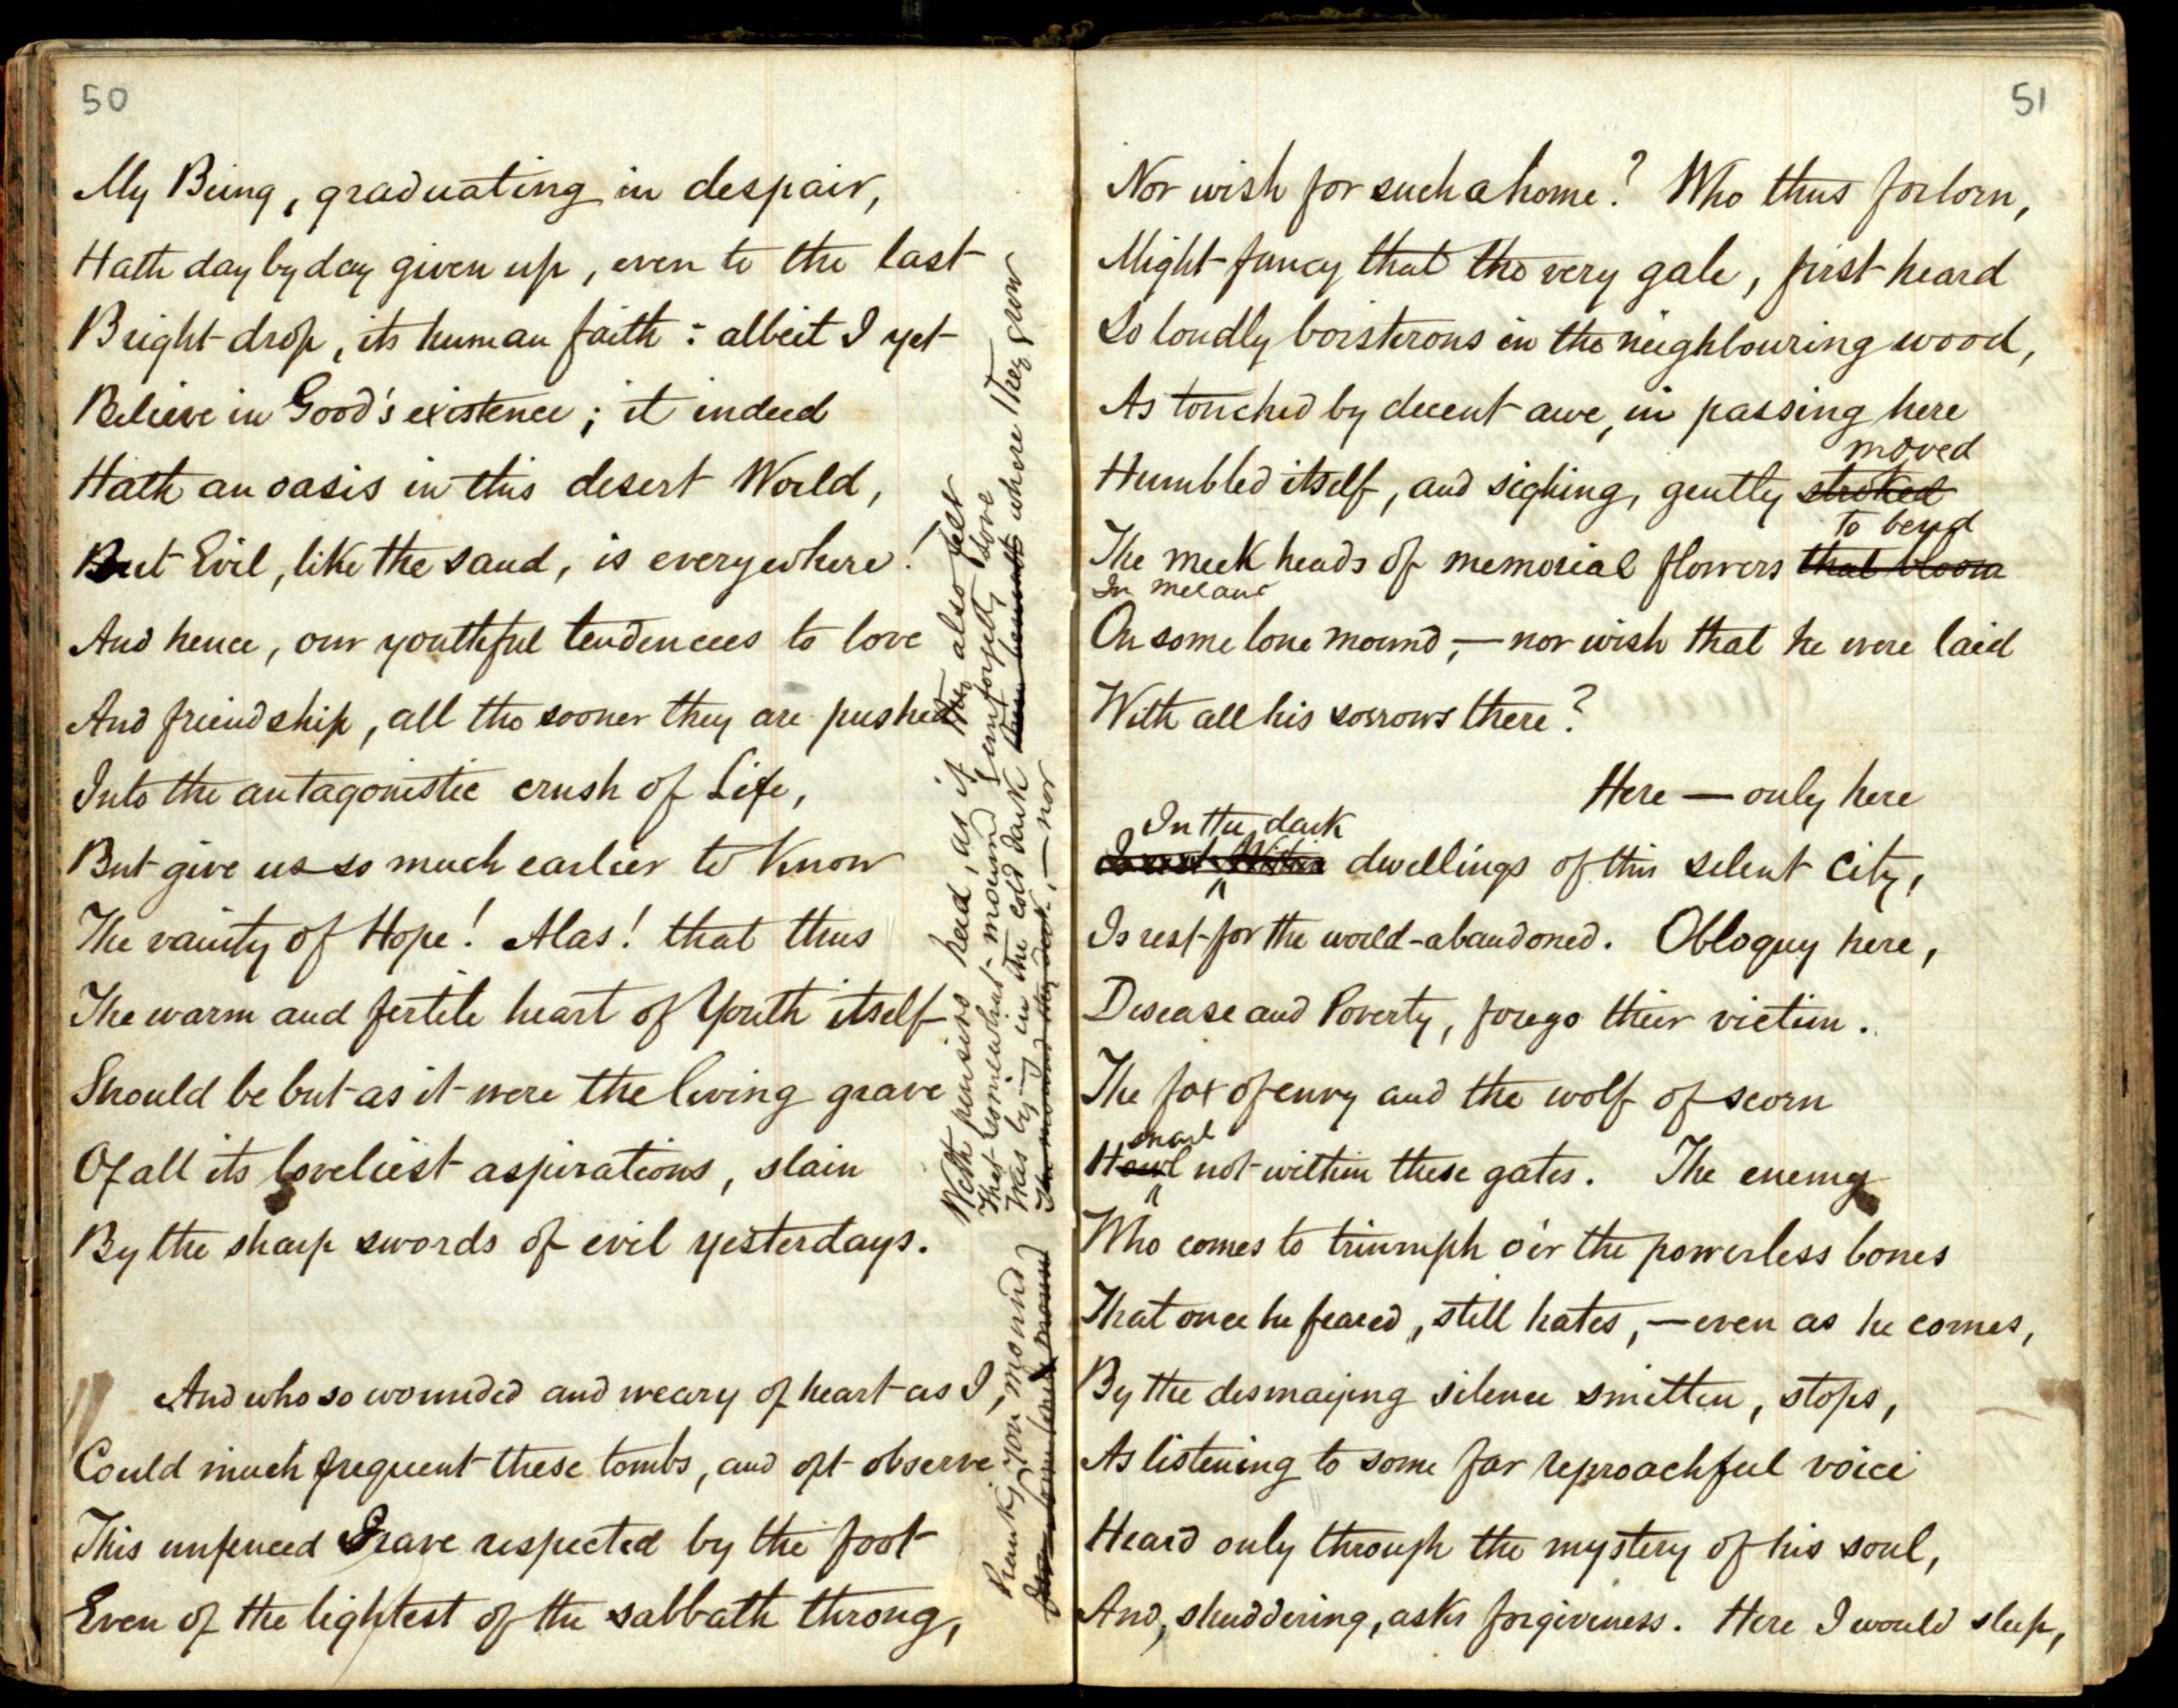 50
My Being, graduating in despair,
Hath day by day given up, even to the last
Bright drop, its human faith: albeit I yet
Believe in Good's existence; it indeed
Hath an oasis in this desert World,
But Evil, like the sand, is everywhere!
And hence, our youthful tendencies to love
And friendship, all the sooner they are pushed
Into the antagonistic crush of Life,
But give us so much earlier to know
The vainity of Hope! Alas! that thus
The warm and fertile heart of Youth itself
Should be but as it were the living grave
Of all its loveliest aspirations, slain
By the sharp swords of evil yesterdays.
And who so wounded and weary of heart as I,
Could much frequent these tombs, and oft observe
This unfenced Grave respected by the foot
Even of the lightest of the sabbath throng,
With pensive head, as if they also felt
That somewhat mound
Was lying in the cold dark where they grow
The mound they deck, — nor
you mound
51
Nor wish for such a home? Who thus forlorn,
Might fancy that the very gale, first heard
So loudly boisterous in the neighbouring wood,
As touched by decent awe, in passing here
moved
Humbled itself, and sighing, gently stroked
to bend
The meek heads of memorial flowers that bloom
In melanc
On some lone mound,— nor wish that he were laid
With all his sorrows there?
Here — only here
In the dark
dwellings of this silent city,
Is rest for the world-abandoned. Obloquy here,
Disease and Poverty, forego their victim.
The fox of envy and the wolf of scorn
snarl
Howl not within these gates. The enemy
Who comes to triumph o'er the powerless bones
That once he feared, still hates,— even as he comes,
By the dismaying silence smitten, stops,
As listening to some far reproachful voice
Heard only through the mystery of his soul,
And, shuddering, asks forgiveness. Here I would sleep,